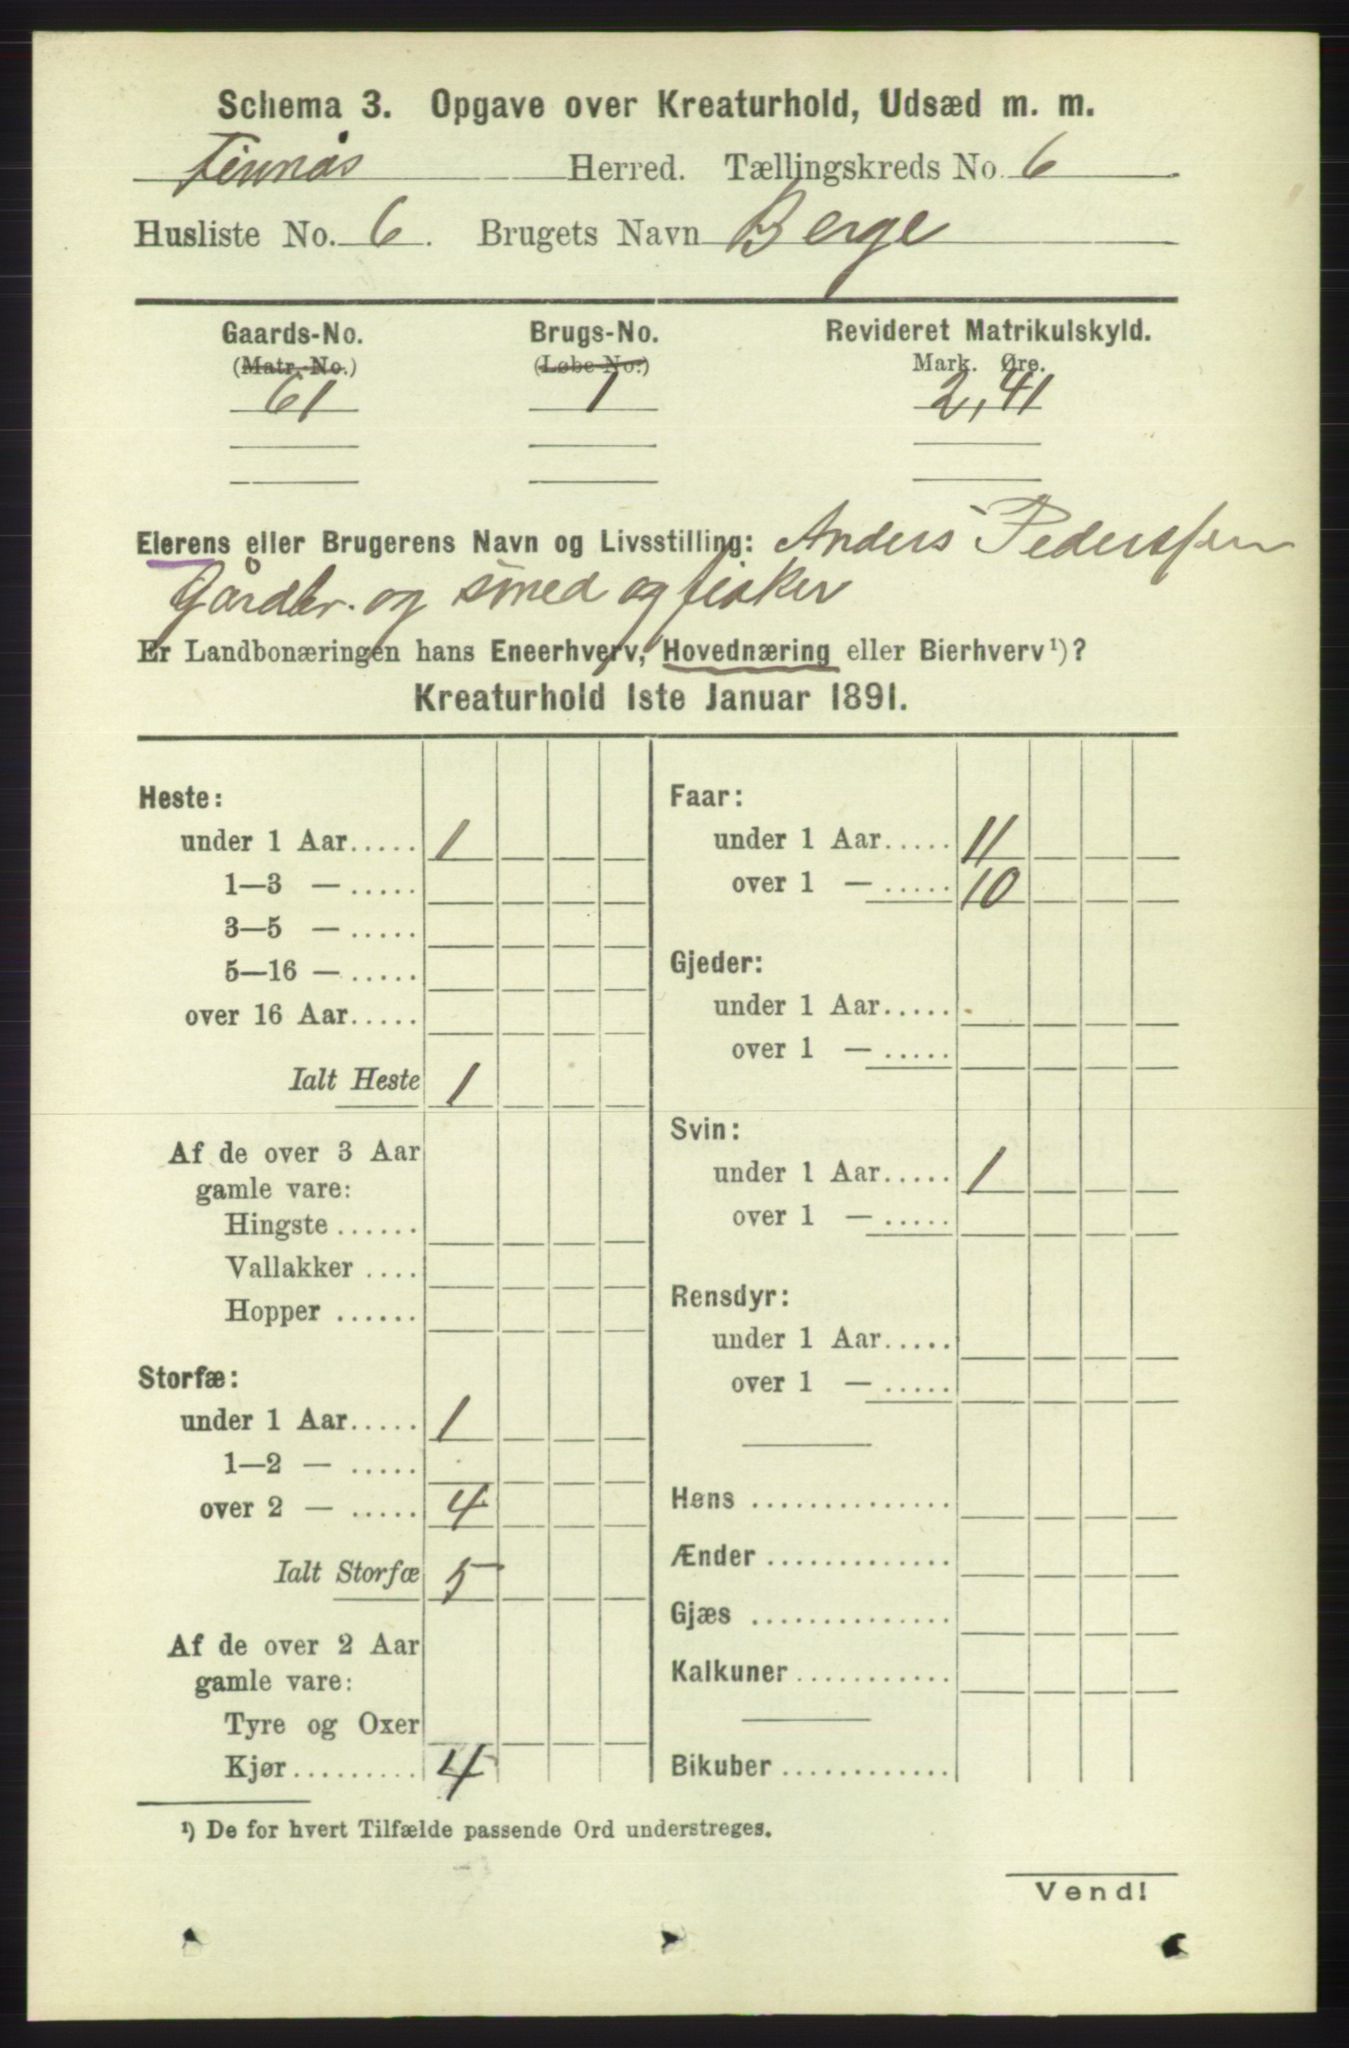 Schema 3. Opgave over Kreaturhold, Udsæd m. m.
Finnås Herred. Tællingskreds No. 6
Husliste No. 6. Brugets Navn Berge
Gaards-No. Brugs-No. Revideret Matrikulskyld.
(Matr.-No.) (Løbe-No.) Mark. Øre.
61 1 2,41
Eierens eller Brugerens Navn og Livsstilling: Anders Pederssen
Gårdbr. og smed og fisker
Er Landbonæringen hans Eneerhverv, Hovednæring eller Bierhverv¹)?
Kreaturhold 1ste Januar 1891.
Heste:
under 1 Aar..... 1
1—3 — .....
3—5 — .....
5—16 — .....
over 16 Aar.....
Ialt Heste 1
Af de over 3 Aar
gamle vare:
Hingste ......
Vallakker ....
Hopper ......
Storfæ:
under 1 Aar..... 1
1—2 — .....
over 2 — ..... 4
Ialt Storfæ 5
Af de over 2 Aar
gamle vare:
Tyre og Oxer
Kjør......... 4
Faar:
under 1 Aar..... 11
over 1 — ..... 10
Gjeder:
under 1 Aar.....
over 1 — .....
Svin:
under 1 Aar..... 1
over 1 — .....
Rensdyr:
under 1 Aar.....
over 1 — .....
Høns ..............
Ænder .............
Gjæs ..............
Kalkuner ...........
Bikuber ............
¹) De for hvert Tilfælde passende Ord understreges.
Vend!